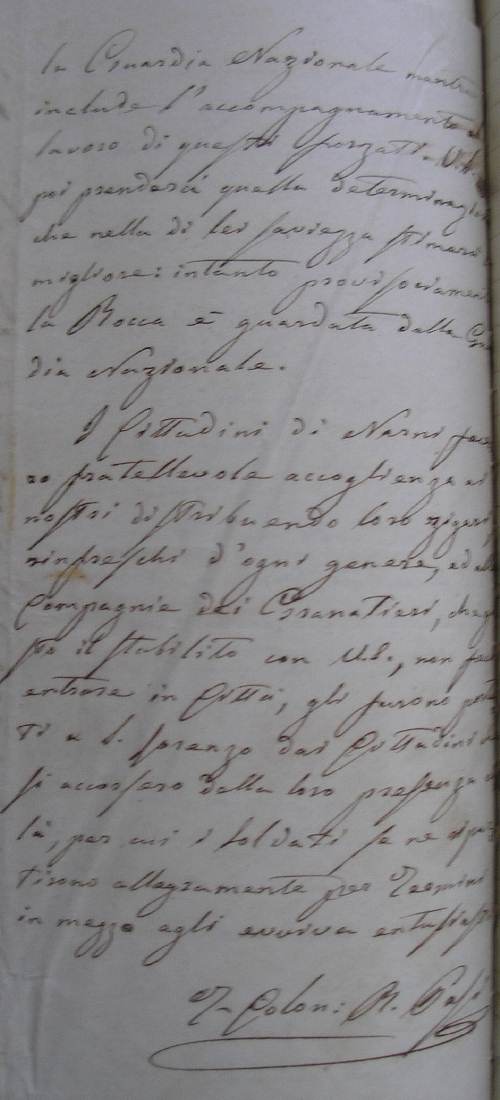 la Guardia Nazionale mentre
include l'accompagnamento al
lavoro di questi forzati. V.S.
poi prenderà quella determinazio
che nella di lei saviezza stimerà
migliore: intanto provisoriament
la Rocca è guardata dalla Gua
dia Nazionale.
I Cittadini di Narni fece
ro fratellevole accoglienza ai
nostri distribuendo loro zigari,
rinfreschi d'ogni genere, ed alle
Compagnie dei Granatieri, che
so il stabilito con V.S., non fe
entrare in Città, gli furono porta
ti a S. Lorenzo dai Cittadini
si accorsero della loro presenza
là, per cui i soldati se ne ripar
tirono allegramente per Terni
in mezzo agli evviva entusiast
T. Colon: R. Pasi